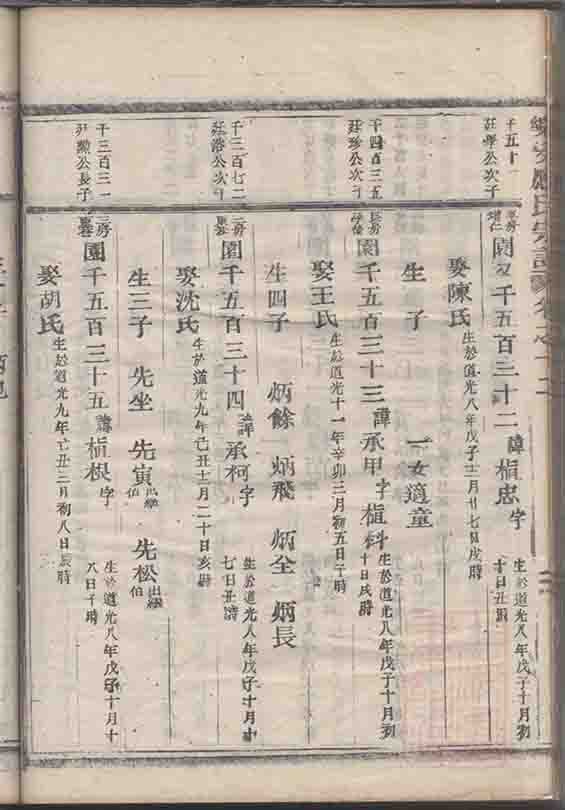 千五十一
莊學公次子
千五百三十二 諱楨忠 字
生於道光八年戊子十月初
十日丑時
娶陳氏 生於道光八年戊子十二月廿七日戌時
生子 一女適童
千四百三五
莊珍公次子
園千五百三十三 諱承甲 字楨科
生於道光八年戊子十月初
十日戌時
娶王氏 生於道光十一年辛卯三月初五日子時
生四子 炳餘 炳飛 炳全 炳長
千三百七二
莊浩公次子
園千五百三十四 諱承柯 字
生於道光八年戊子十月十
七日丑時
娶沈氏 生於道光九年己丑十一月二十日亥時
生三子 先坐 先寅 先松 出繼伯
千三百三一
公長子
三房
園千五百三十五 諱楨根 字
生於道光八年戊子十月十
八日子時
娶胡氏 生於道光九年己丑二月初八日辰時